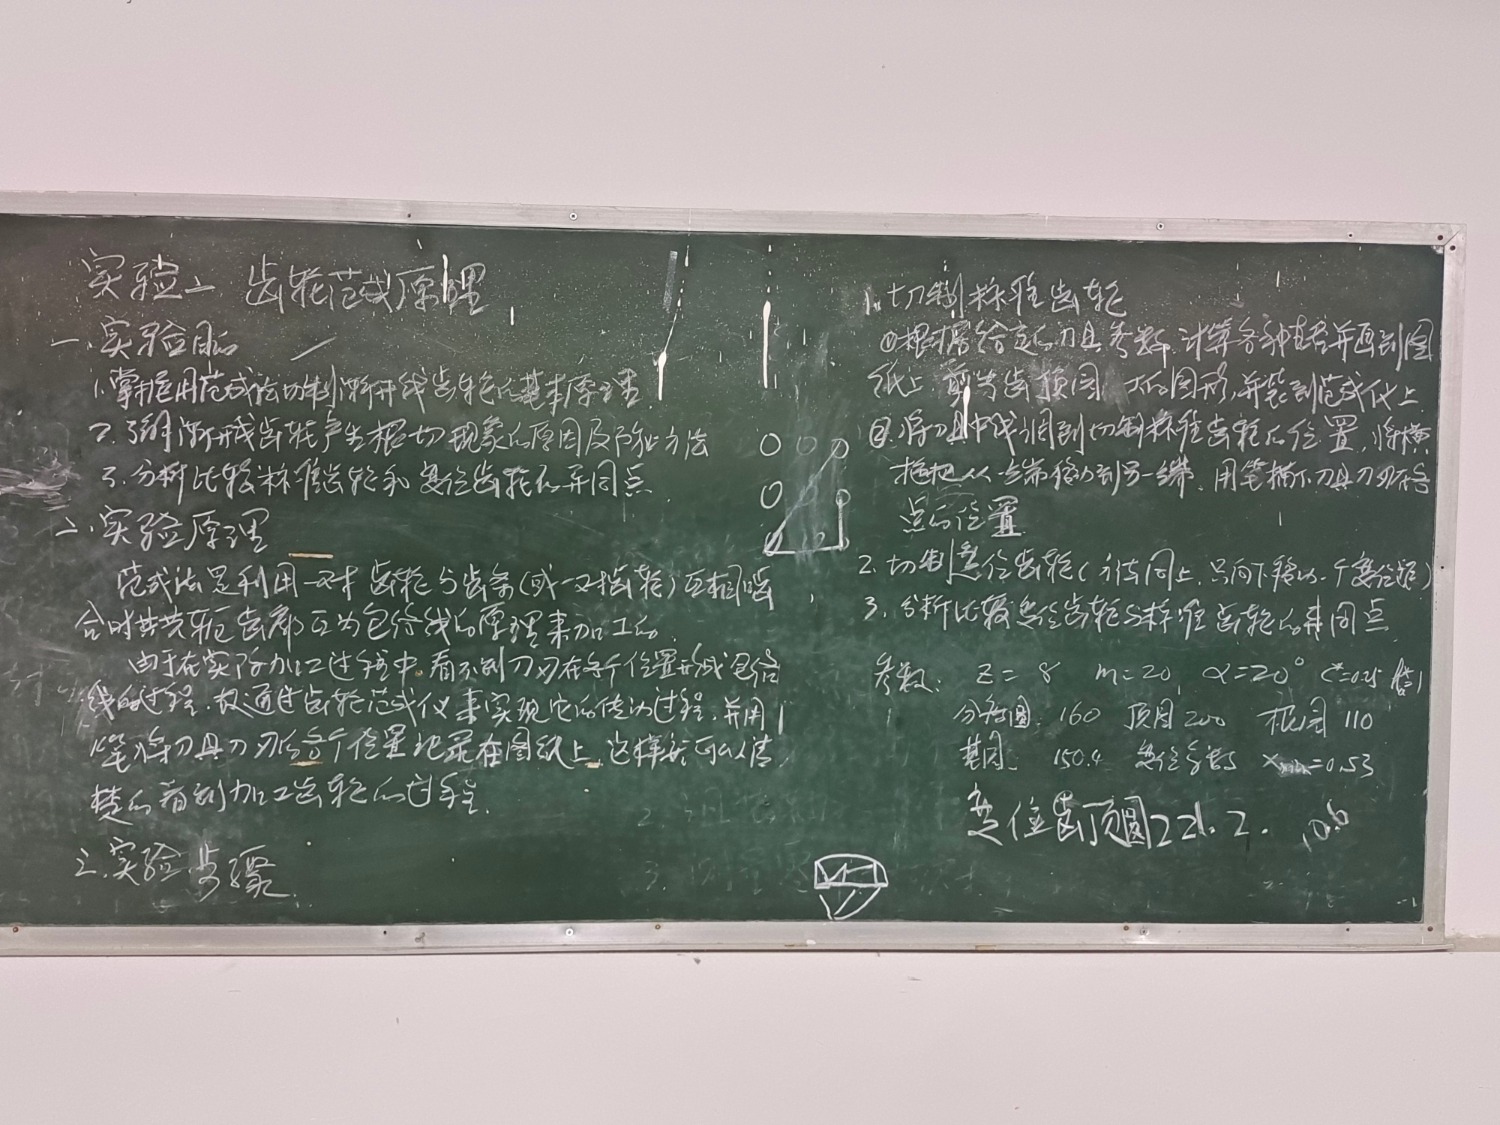 实验二 齿轮范成原理
一.实验目的
1.掌握用范成法切制渐开线齿轮的基本原理
2.了解渐开线齿轮产生根切现象的原因及防止方法
3.分析比较标准齿轮和变位齿轮的异同点
二.实验原理
范成法是利用一对齿轮与齿条(或一对齿轮)互相啮
合时其共轭齿廓互为包络线的原理来加工的.
由于在实际加工过程中.看不到刀刃在各个位置形成包络
线的过程.故通过齿轮范成仪来实现它的传动过程.并用
笔将刀具刀刃的各个位置记录在图纸上.这样就可以清
楚的看到加工齿轮的过程.
三.实验步骤
1.切制标准齿轮
①根据给定的刀具参数,计算各种直径并画到图
纸上 剪为齿顶圆 的圆形,并装到范成仪上
②.将刀具中线调到切制标准齿轮的位置,将横
拖把从一端移动到另一端.用笔描下刀具刀刃各
点的位置
2.切制变位齿轮(方法同上.只向下移动一个变位距)
3.分析比较变位齿轮与标准齿轮的异同点
参数: z=8 m=20, α=20° c*=0.25
分度圆: 160 顶圆200 根圆110
基圆: 150.4 变位系数 Xmin=0.53
变位齿顶圆221.2. 10.6